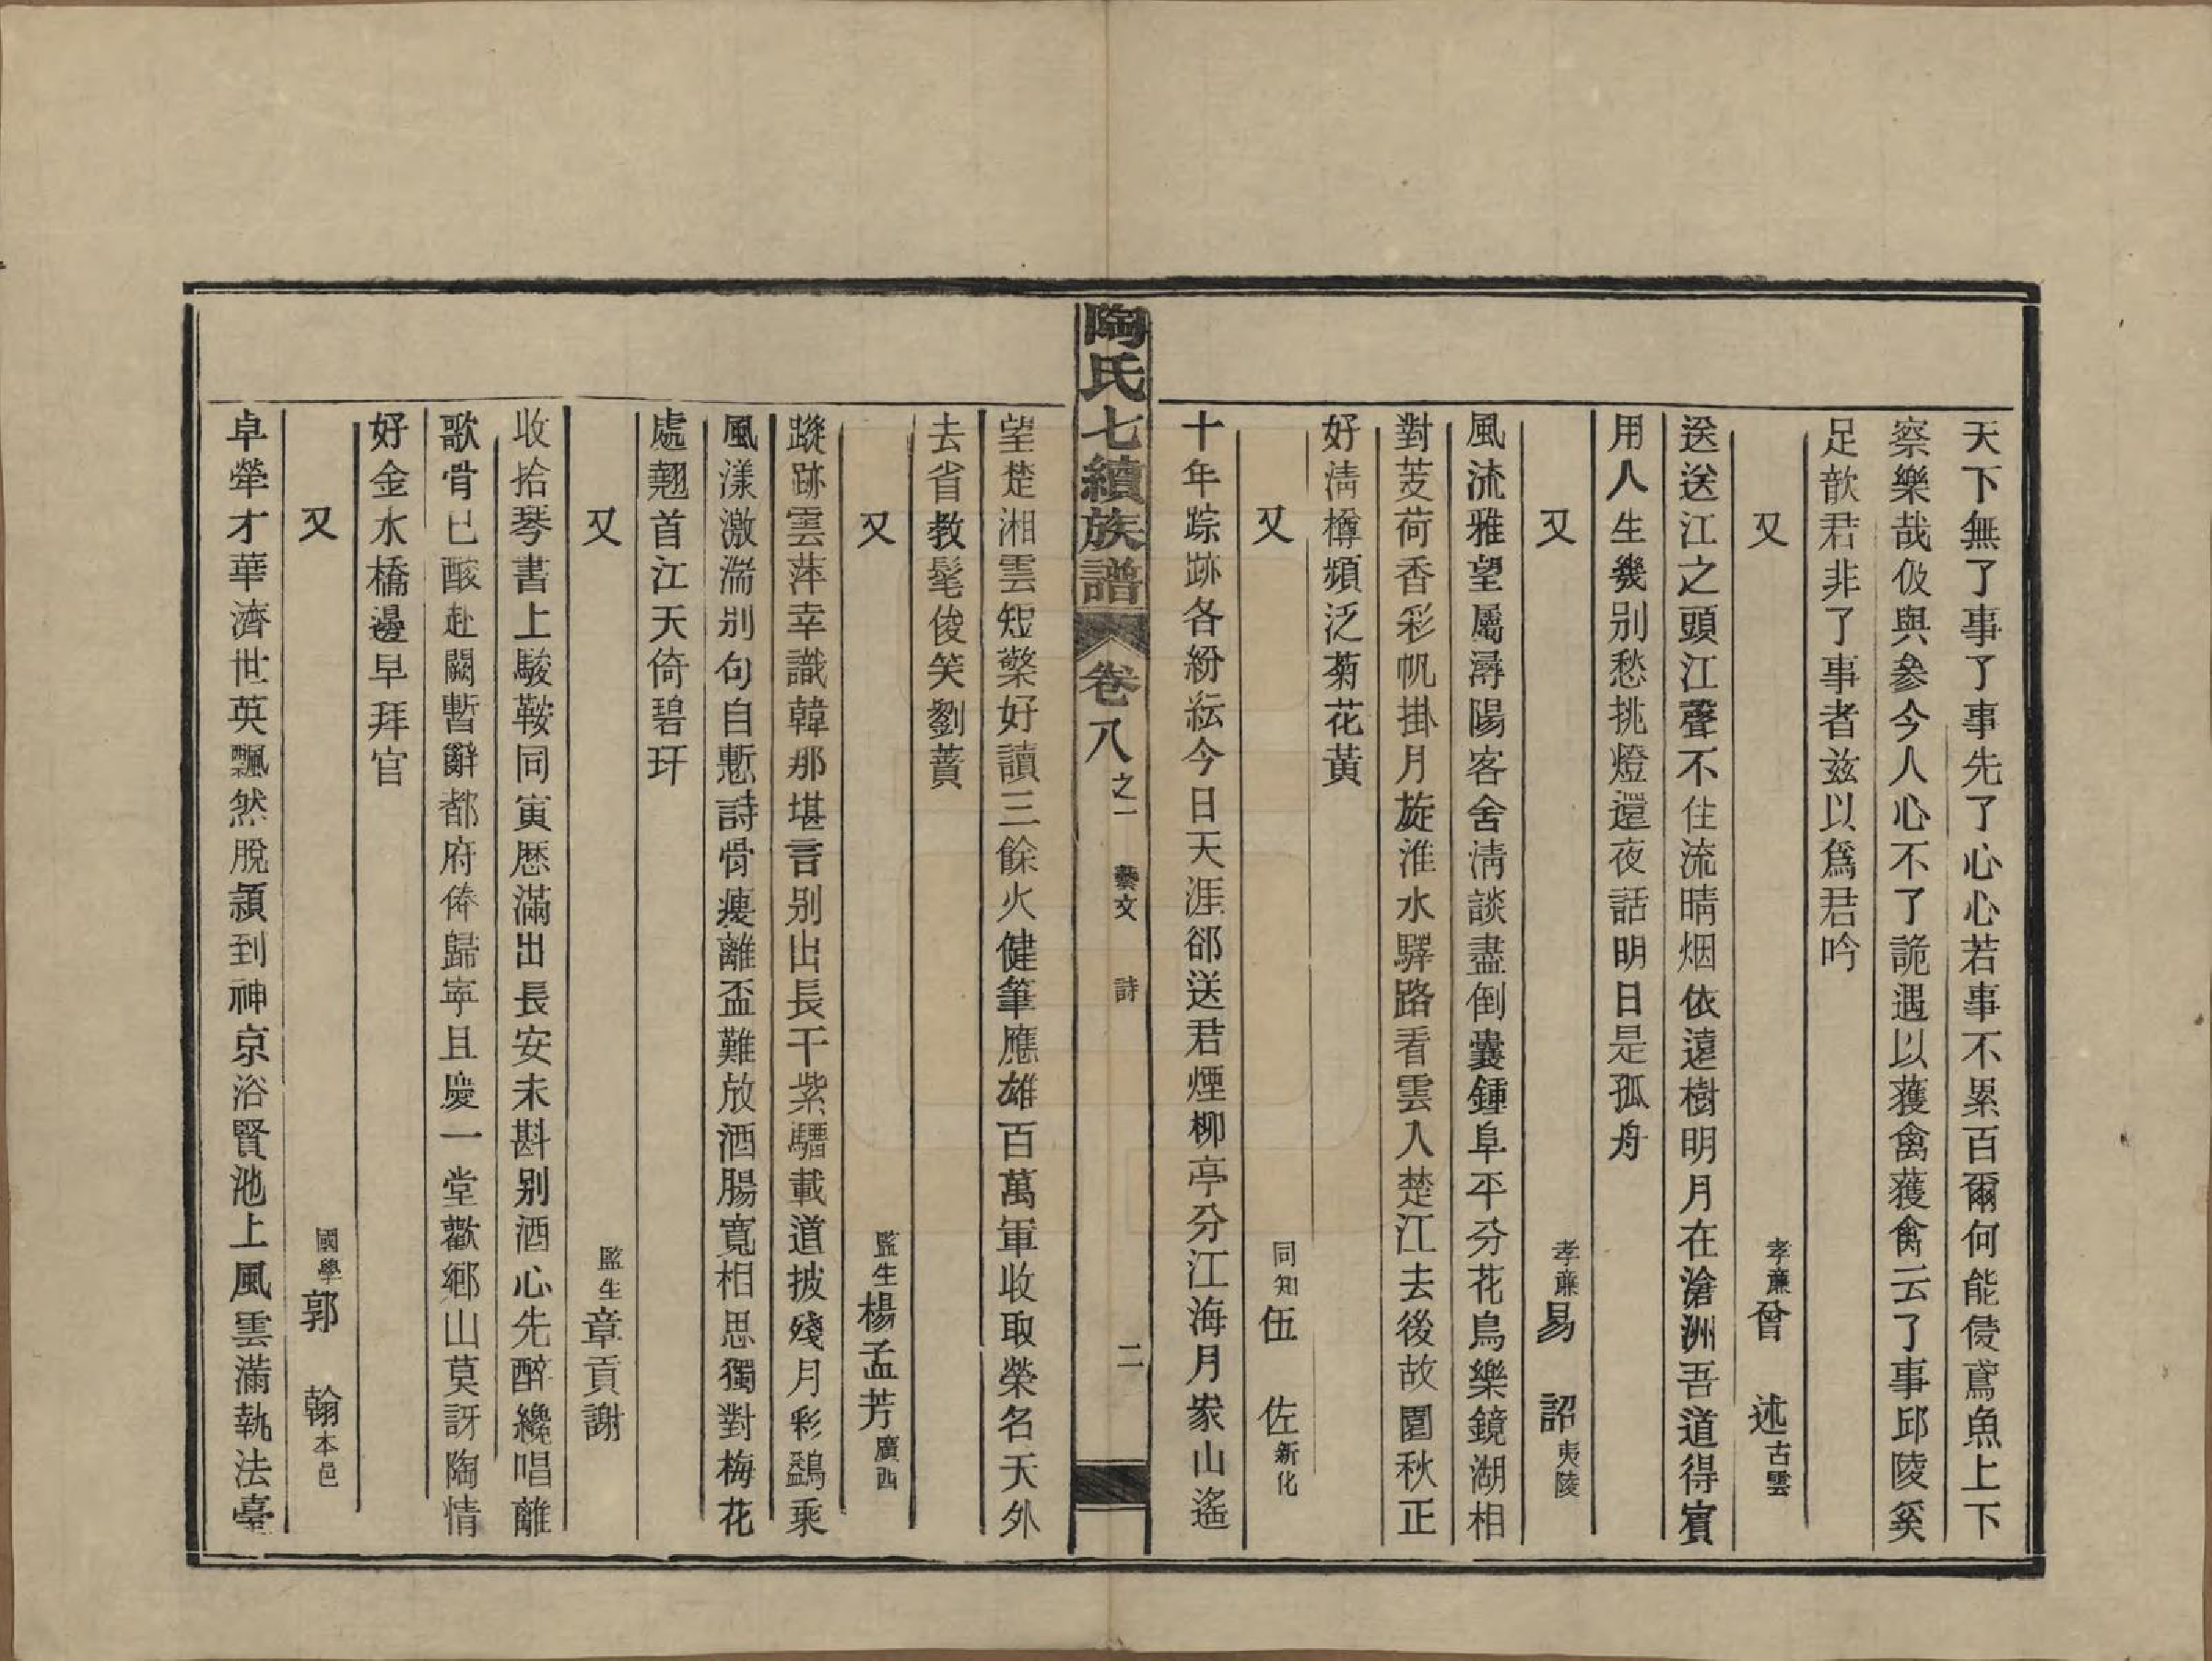 天下無了事了事先了心心若事不累百爾何能侵鳶魚上下
察樂哉伋與參今人心不了詭遇以獲禽獲禽云了事邱陵奚
足歆君非了事者兹以爲君吟
又　孝亷曾　述古雲
送送江之頭江聲不住流晴烟依遠樹明月在滄洲吾道得賔
用人生幾别愁挑燈還夜話明日是孤舟
又　孝亷易　詔夷陵
風流雅望屬潯陽客舍清談盡倒囊鍾阜平分花鳥樂鏡湖相
對芰荷香彩帆掛月旋淮水驛路看雲入楚江去後故園秋正
好清樽頻泛菊花黃
又　同知伍　佐新化
十年踪跡各紛紜今日天涯郤送君煙柳亭分江海月衆山遙
陶氏七續族譜　卷八之一　藝文　詩　二
望楚湘雲短檠好讀三餘火健筆應雄百萬軍收取榮名天外
去省教髦俊笑劉蕡
又　監生楊孟芳廣西
蹤跡雲萍幸識韓那堪言别出長干紫騮載道披殘月彩鷁乘
風漾激湍别句自慙詩骨瘦離盃難放酒腸寬相思獨對梅花
處翹首江天倚碧玕
又　監生章貢謝
收拾琴書上駿鞍同寅歴滿出長安未斟别酒心先醉纔唱離
歌骨已酸赴闕暫辭都府俸歸寧且慶一堂歡鄉山莫訝陶情
好金水橋邊早拜官
又　國學郭　翰本邑
卓犖才華濟世英飄然脫穎到神京浴賢池上風雲滿執法臺